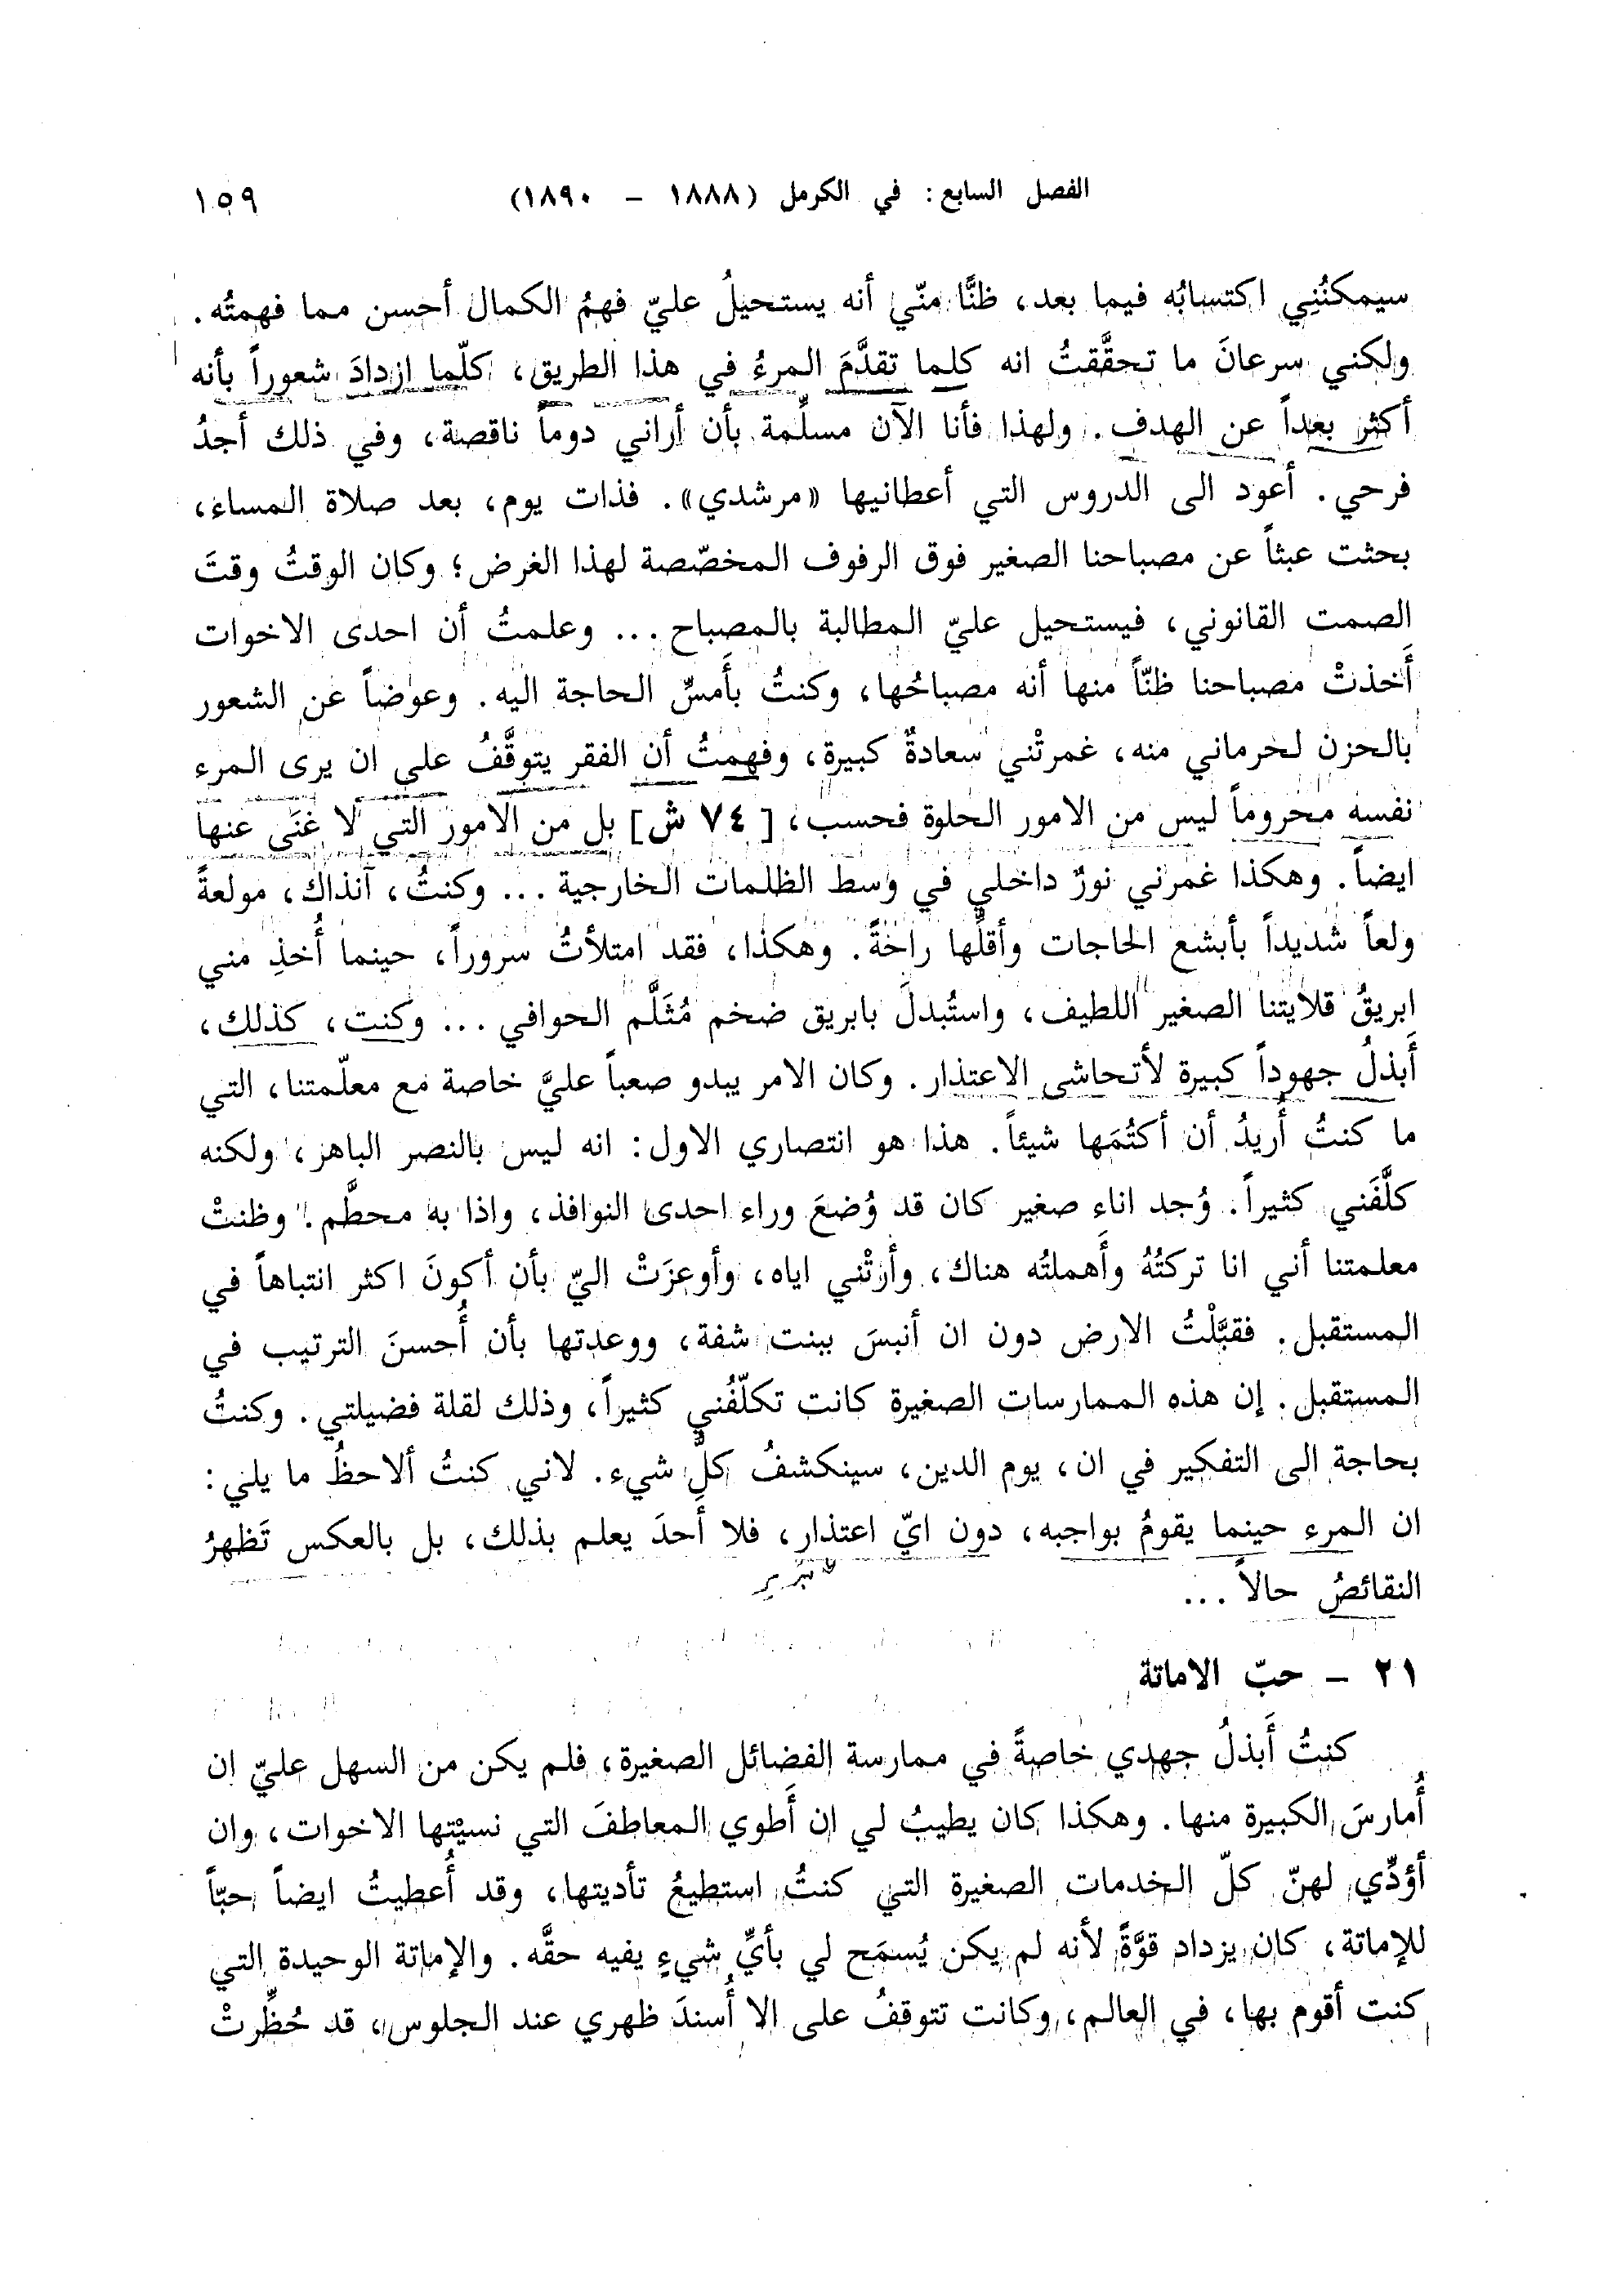 الفصل السابع: في الكرمل (١٨٨٨ – ١٨٩٠) ١٥٩
سيمكنُنِي اكتسابُه فيما بعد، ظنًّا منّي أنه يستحيلُ عليّ فهمُ الكمال أحسن مما فهمتُه.
ولكني سرعانَ ما تحقَّقتُ انه كلما تقدَّمَ المرءُ في هذا الطريق، كلّما ازدادَ شعوراً بأنه
أكثر بعداً عن الهدف. ولهذا فأنا الآن مسلِّمة بأن أراني دوماً ناقصة، وفي ذلك أجدُ
فرحي. أعود الى الدروس التي أعطانيها «مرشدي». فذات يوم، بعد صلاة المساء،
بحثت عبثاً عن مصباحنا الصغير فوق الرفوف المخصّصة لهذا الغرض؛ وكان الوقتُ وقتَ
الصمت القانوني، فيستحيل عليّ المطالبة بالمصباح ... وعلمتُ أن احدى الاخوات
أَخذتْ مصباحنا ظنّاً منها أنه مصباحُها، وكنتُ بأَمسِّ الحاجة اليه. وعوضاً عن الشعور
بالحزن لحرماني منه، غمرتْني سعادةٌ كبيرة، وفهمتُ أن الفقر يتوقَّفُ على ان يرى المرء
نفسه محروماً ليس من الامور الحلوة فحسب، [٧٤ ش] بل من الامور التي لا غنَى عنها
ايضاً. وهكذا غمرني نورٌ داخلي في وسط الظلمات الخارجية ... وكنتُ، آنذاك، مولعةً
ولعاً شديداً بأبشع الحاجات وأقلِّها راحةً. وهكذا، فقد امتلأتُ سروراً، حينما أُخذِ مني
ابريقُ قلايتنا الصغير اللطيف، واستُبدلَ بابريق ضخم مُثَلَّم الحوافي ... وكنت، كذلك،
أَبذلُ جهوداً كبيرة لأتحاشى الاعتذار. وكان الامر يبدو صعباً عليَّ خاصة مع معلّمتنا، التي
ما كنتُ أُريدُ أن أكتُمَها شيئاً. هذا هو انتصاري الاول: انه ليس بالنصر الباهر، ولكنه
كلَّفَني كثيراً. وُجد اناء صغير كان قد وُضعَ وراء احدى النوافذ، واذا به محطَّم. وظنتْ
معلمتنا أني انا تركتُهُ وأَهملتُه هناك، وأرتْني اياه، وأوعزَتْ اليّ بأن أكونَ اكثر انتباهاً في
المستقبل. فقبَّلْتُ الارض دون ان أنبسَ ببنت شفة، ووعدتها بأن أُحسنَ الترتيب في
المستقبل. إن هذه الممارسات الصغيرة كانت تكلّفُني كثيراً، وذلك لقلة فضيلتي. وكنتُ
بحاجة الى التفكير في ان، يوم الدين، سينكشفُ كلّ شيء. لاني كنتُ ألاحظُ ما يلي:
ان المرء حينما يقومُ بواجبه، دون ايّ اعتذار، فلا أَحدَ يعلم بذلك، بل بالعكس تَظهرُ
النقائصُ حالاً ...
٢١ – حبّ الاماتة
كنتُ أَبذلُ جهدي خاصةً في ممارسة الفضائل الصغيرة، فلم يكن من السهل عليّ ان
أُمارسَ الكبيرة منها. وهكذا كان يطيبُ لي ان أَطوي المعاطفَ التي نسيْتها الاخوات، وان
أؤدِّي لهنّ كلّ الخدمات الصغيرة التي كنتُ استطيعُ تأديتها، وقد أُعطيتُ ايضاً حبّاً
للإماتة، كان يزداد قوَّةً لأنه لم يكن يُسمَح لي بأيِّ شيءٍ يفيه حقَّه. والإماتة الوحيدة التي
كنت أقوم بها، في العالم، وكانت تتوقفُ على الا أُسندَ ظهري عند الجلوس، قد حُظِّرتْ